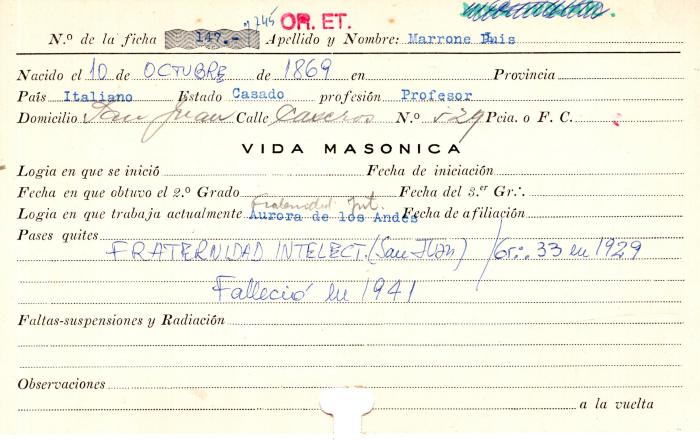 y 745 OR. ET.
N.º de la ficha 147.- Apellido y Nombre: Marrone Luis
Nacido el 10 de OCTUBRE de 1869 en Provincia
País Italiano Estado Casado profesión Profesor
Domicilio San Juan Calle Caseros N.º 529 Pcia. o F. C.
VIDA MASONICA
Logia en que se inició Fecha de iniciación
Fecha en que obtuvo el 2.º Grado Fecha del 3.er Gr∴
Fraternidad Int.
Logia en que trabaja actualmente Aurora de los Andes Fecha de afiliación
Pases quites
FRATERNIDAD INTELECT. (San Juan) / Gr∴ 33 en 1929
Falleció en 1941
Faltas-suspensiones y Radiación
Observaciones
a la vuelta